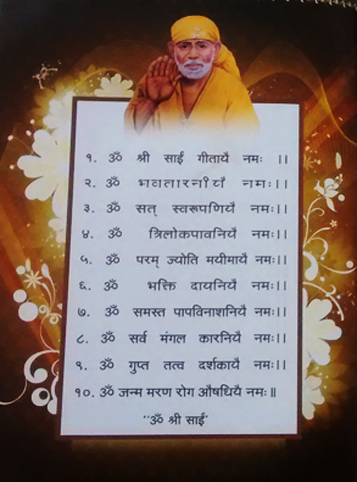 १. ॐ श्री साईं गीतायै नमः ।।
२. ॐ भवतारनीयै नमः।।
३. ॐ सत् स्वरूपणियै नमः।।
४. ॐ त्रिलोकपावनियै नमः।।
५. ॐ परम् ज्योति मयीमायै नमः।।
६. ॐ भक्ति दायनियै नमः।।
७. ॐ समस्त पापविनाशनियै नमः।।
८. ॐ सर्व मंगल कारनियै नमः।।
९. ॐ गुप्त तत्व दर्शकायै नमः।।
१०. ॐ जन्म मरण रोग औषधियै नमः॥
“ॐ श्री साईं”